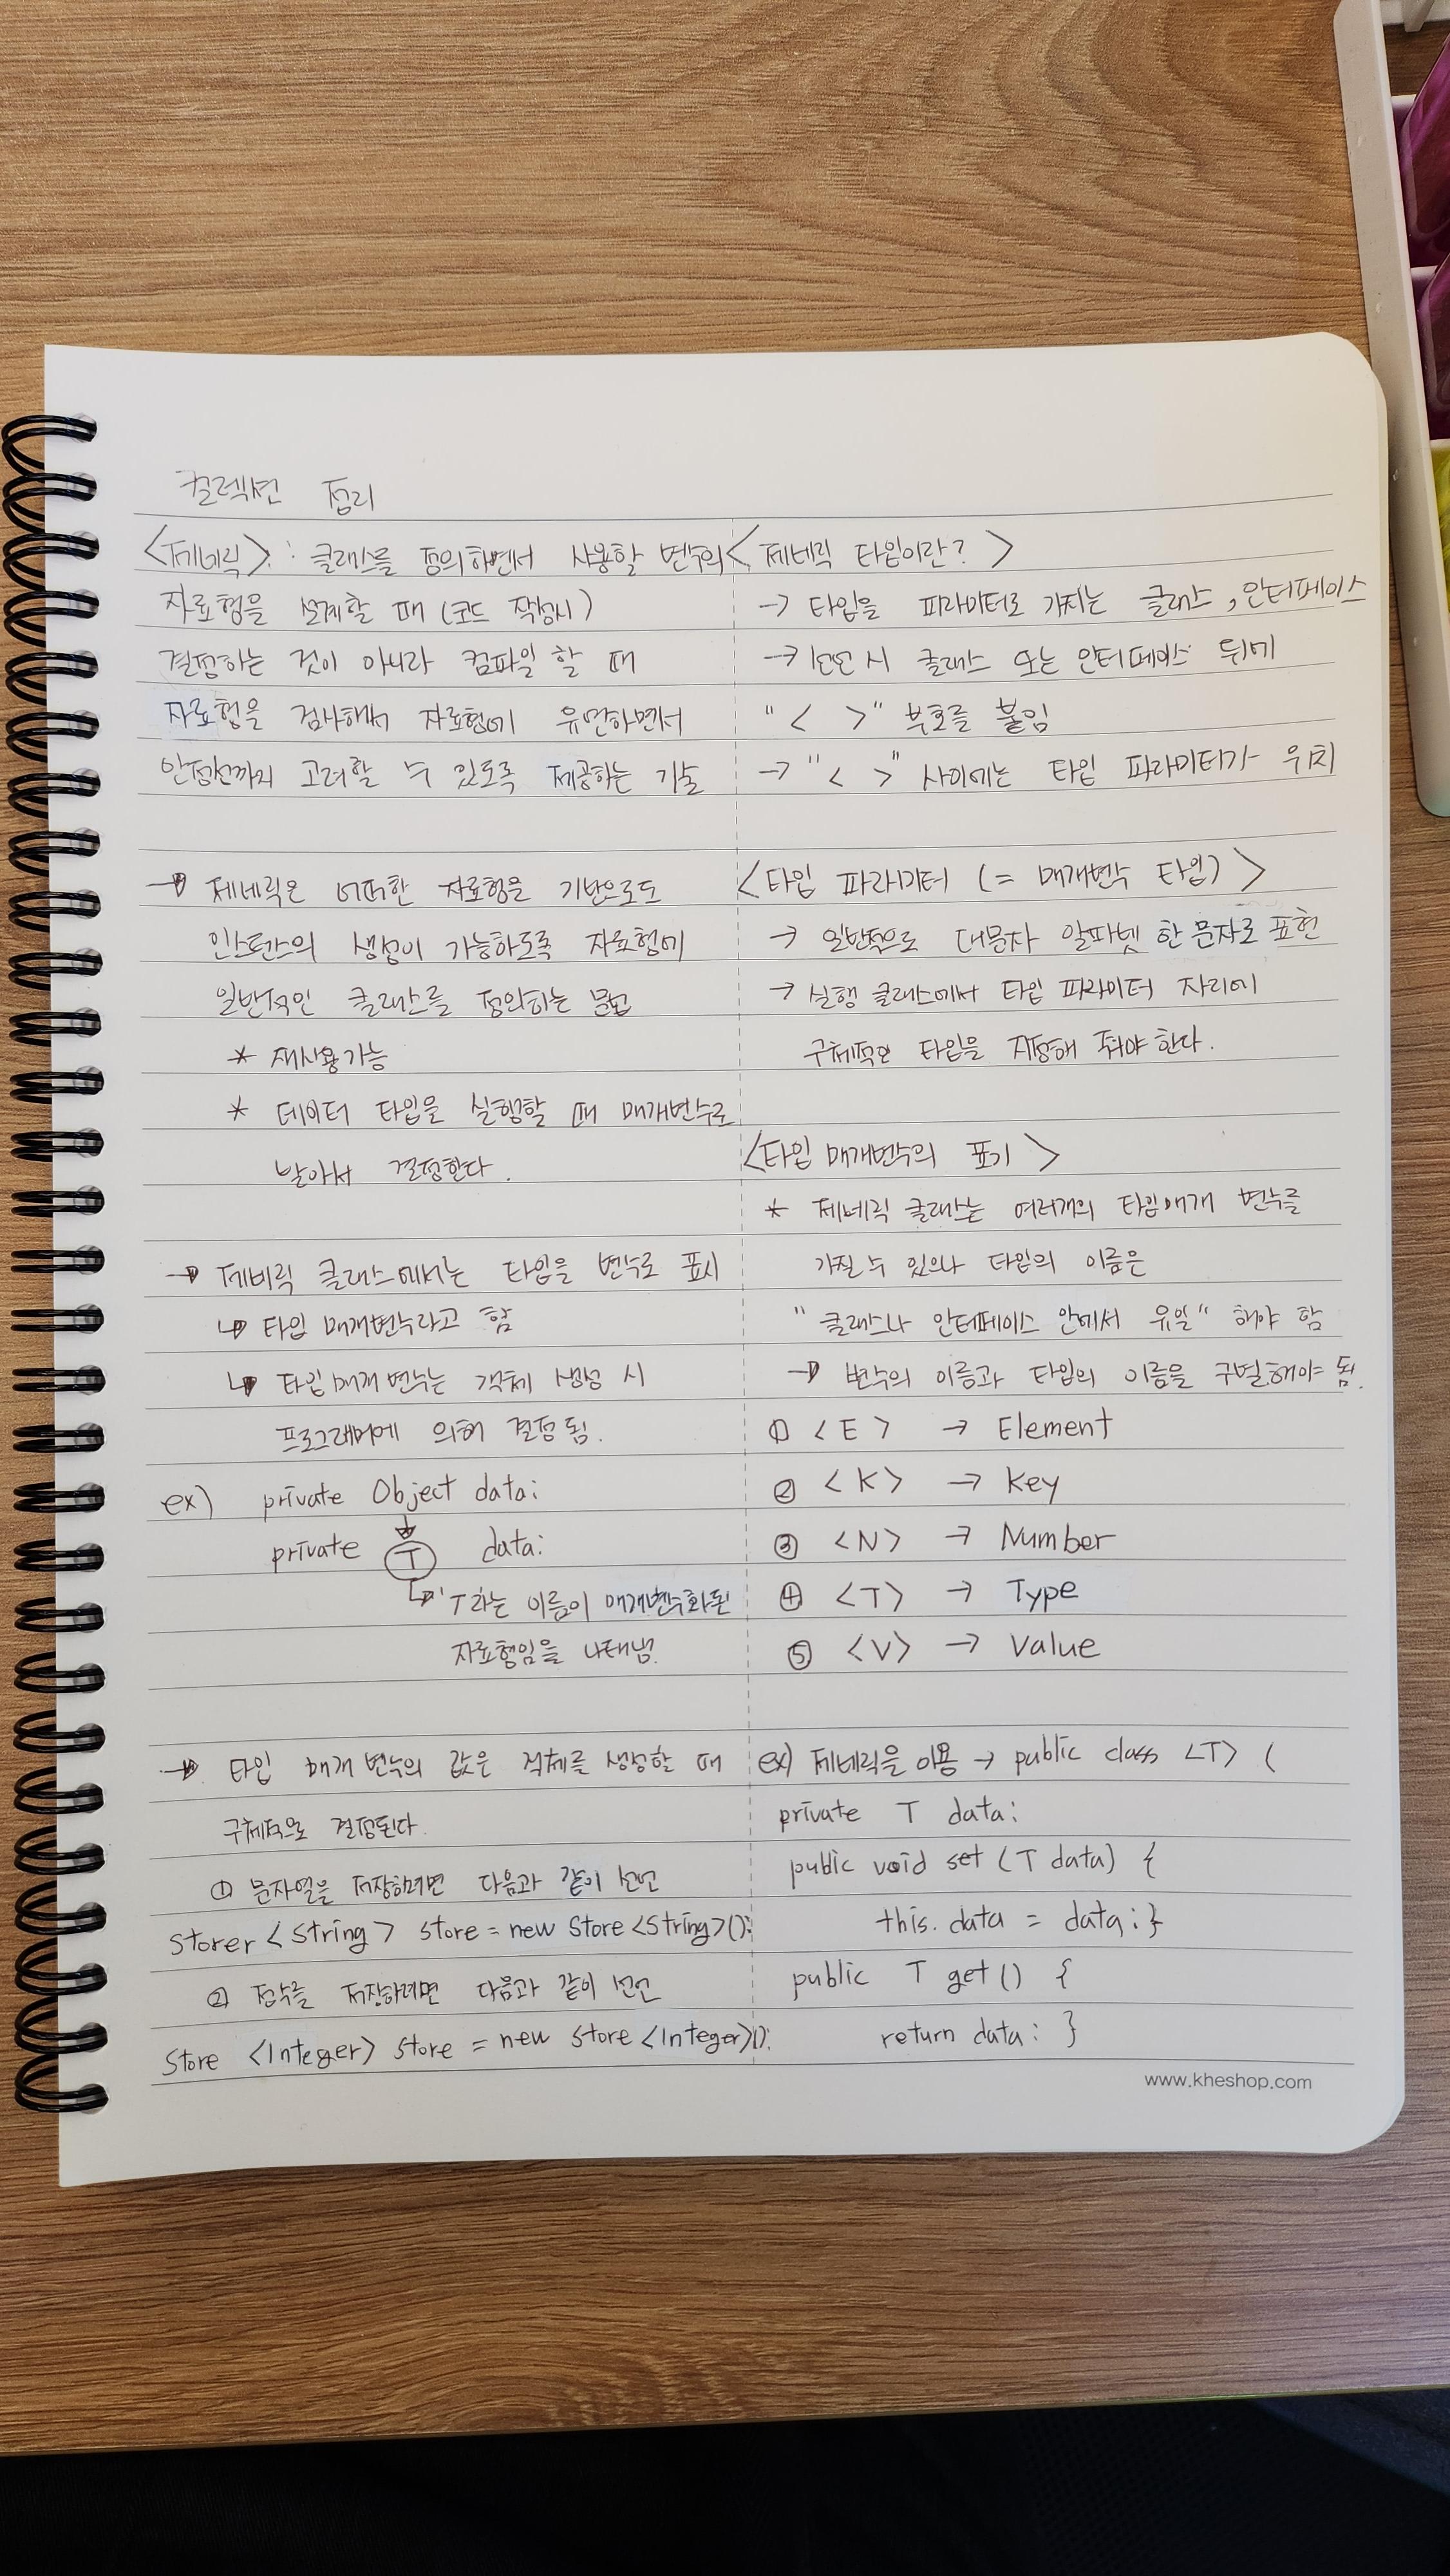 컬렉션 정리
<제네릭> : 클래스를 정의하면서 사용할 변수의
자료형을 설계할 때 (코드 작성시)
결정하는 것이 아니라 컴파일 할 때
자료형을 검사해서 자료형에 유연하면서
안정성까지 고려할 수 있도록 제공하는 기술
→ 제네릭은 어떠한 자료형을 기반으로도
인스턴스의 생성이 가능하도록 자료형에
일반적인 클래스를 정의하는 문법
* 재사용가능
* 데이터 타입을 실행할 때 매개변수로
받아서 결정한다.
→ 제네릭 클래스에서는 타입을 변수로 표시
↳ 타입 매개변수라고 함
↳ 타입 매개변수는 객체 생성 시
프로그래머에 의해 결정 됨.
ex) private Object data;
private T data;
↳ 'T라는 이름이 매개변수화된
자료형임을 나타냄.
→ 타입 매개 변수의 값은 객체를 생성할 때
구체적으로 결정된다.
① 문자열을 저장하려면 다음과 같이 선언
Storer <String> store = new Store <String>();
② 정수를 저장하려면 다음과 같이 선언
Store <Integer> store = new Store <Integer>();
< 제네릭 타입이란? >
→ 타입을 파라미터로 가지는 클래스, 인터페이스
→ 선언 시 클래스 또는 인터페이스 뒤에
" < > " 부호를 붙임
→ " < > " 사이에는 타입 파라미터가 위치
<타입 파라미터 (= 매개변수 타입) >
→ 일반적으로 대문자 알파벳 한 문자로 표현
→ 실행 클래스에서 타입 파라미터 자리에
구체적인 타입을 지정해 줘야 한다.
<타입 매개변수의 표기 >
* 제네릭 클래스는 여러개의 타입매개 변수를
가질 수 있으나 타입의 이름은
" 클래스나 인터페이스 안에서 유일 " 해야 함
→ 변수의 이름과 타입의 이름을 구별해야 됨.
① <E> → Element
② <K> → Key
③ <N> → Number
④ <T> → Type
⑤ <V> → Value
ex) 제네릭을 이용 → public class <T> (
private T data;
public void set (T data) {
this. data = data; }
public T get() {
return data; }
www.kheshop.com